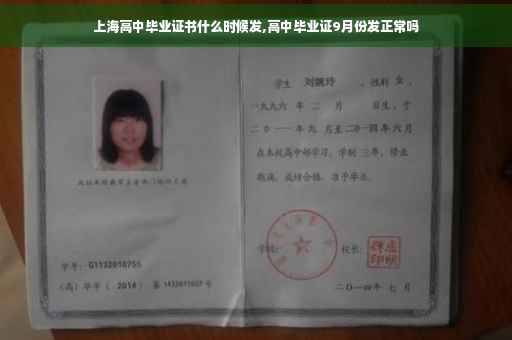 上海高中毕业证书什么时候发,高中毕业证9月份发正常吗
学生 刘婉玲 ，性别 女 ，
一九九六 年 二 月 日生，于
二〇一一年九 月至二〇一四年 六 月
在本校高中部学习，学制 三年，修业
期满，成绩合格，准予毕业。
学校：
校长：
学号：G1132010755
（高）毕字（ 2014 ）第 1432011027 号
二〇一四年 七 月